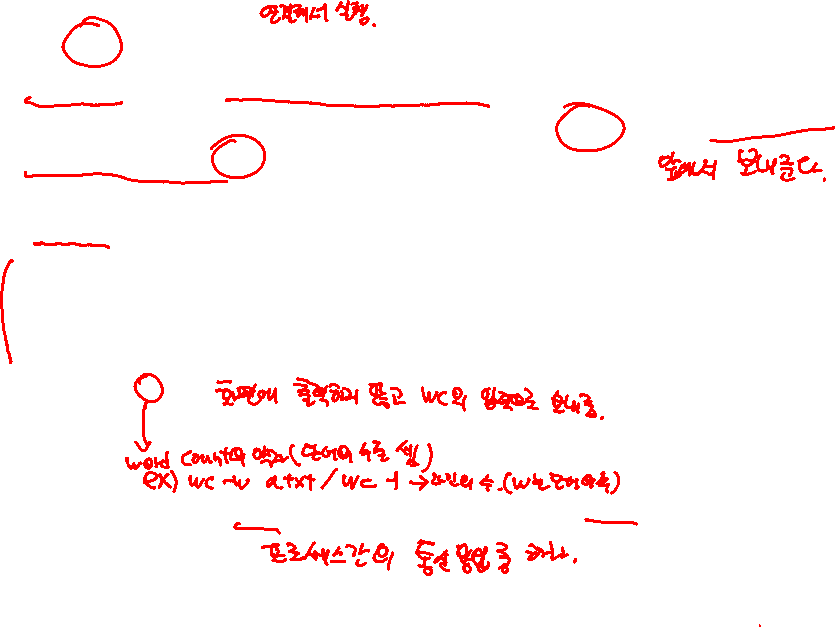 연결해서 실행.
앞에서 보내준다.
화면에 출력하지 않고 wc의 입력으로 보내줌.
word count의 약자(단어의 수를 셈)
ex) wc -w a.txt / wc -l → 라인의 수.(w는 단어의 수)
프로세스간의 통신 방법 중 하나.